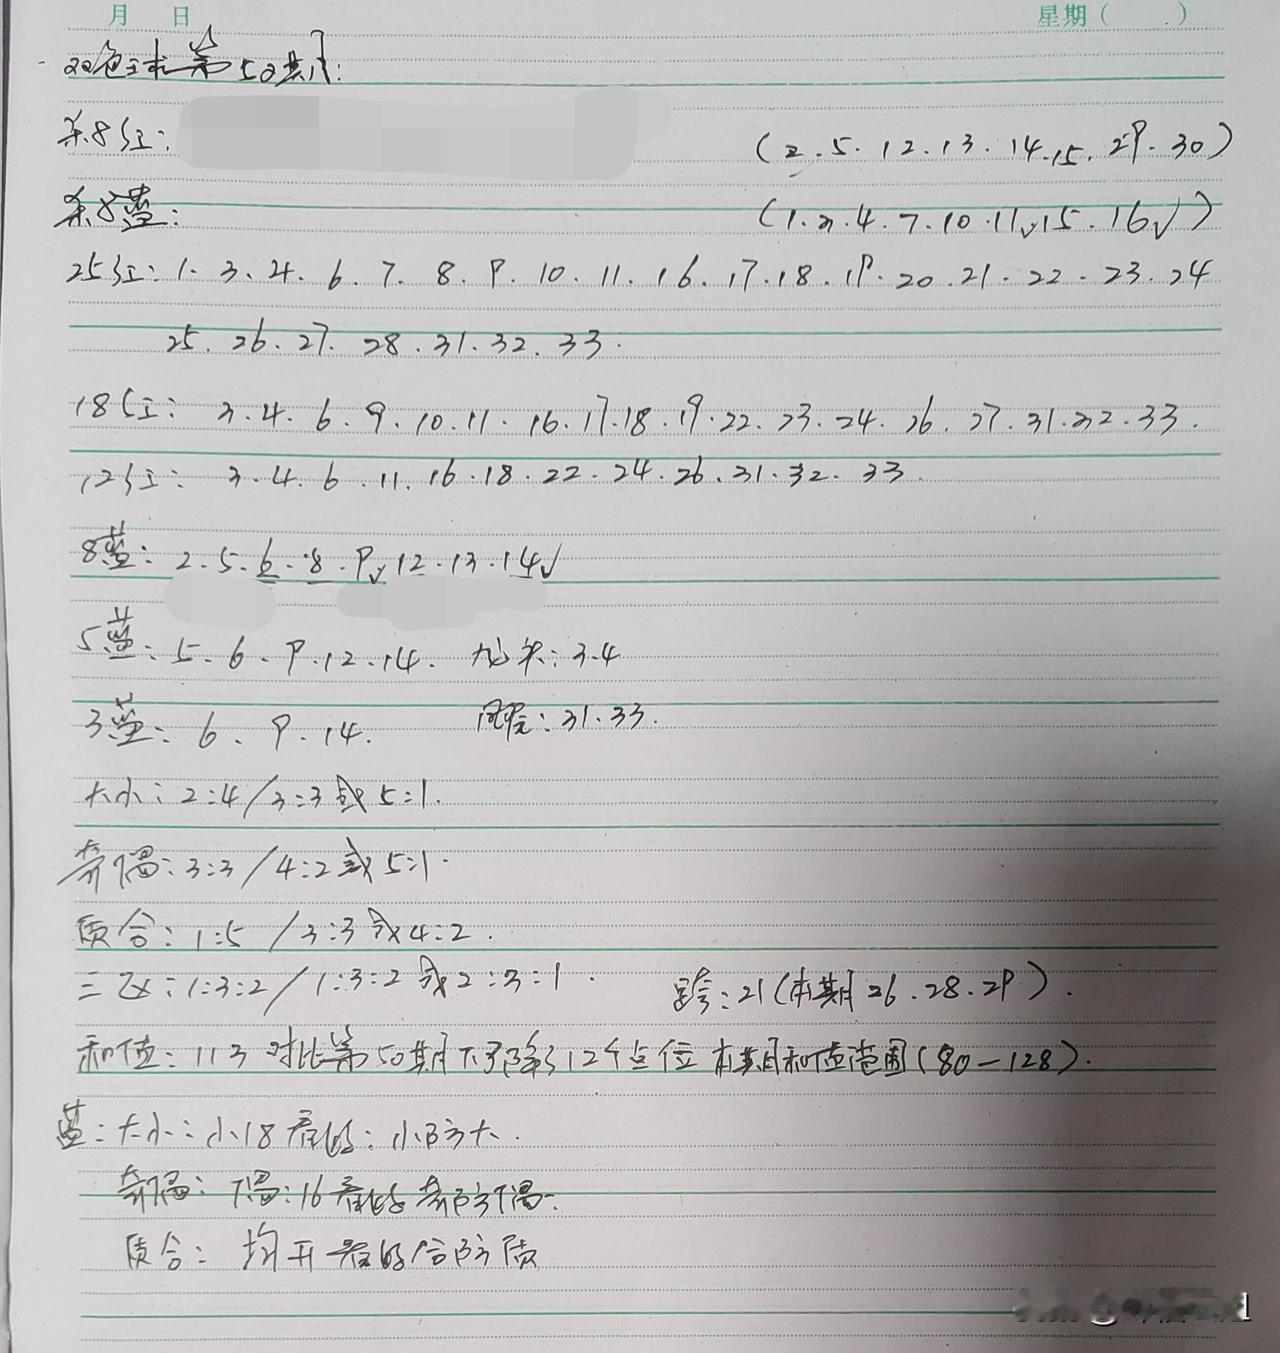 月 日 星期( )
双色球第50期:
杀8红: (2.5.12.13.14.15.29.30)
杀8蓝: (1.2.4.7.10.11√15.16√)
25红: 1.3.4.6.7.8.9.10.11.16.17.18.19.20.21.22.23.24
25.26.27.28.31.32.33.
18红: 3.4.6.9.10.11.16.17.18.19.22.23.24.26.27.31.32.33.
12红: 3.4.6.11.16.18.22.24.26.31.32.33
8蓝: 2.5.6.8.9√12.13.14√
5蓝: 5.6.9.12.14. 龙头: 3.4
3蓝: 6.9.14. 凤尾: 31.33.
大小: 2:4/3:3或5:1.
奇偶: 3:3/4:2或5:1.
质合: 1:5/3:3或4:2.
三区: 1:3:2/1:3:2或2:3:1. 跨: 21(本期26.28.29).
和值: 113 对比第50期下降12个点位 本期和值范围(80-128).
蓝: 大小: 小18 看好: 小防大.
奇偶: 下偶: 16看好 奇防偶.
质合: 均开看好合防质